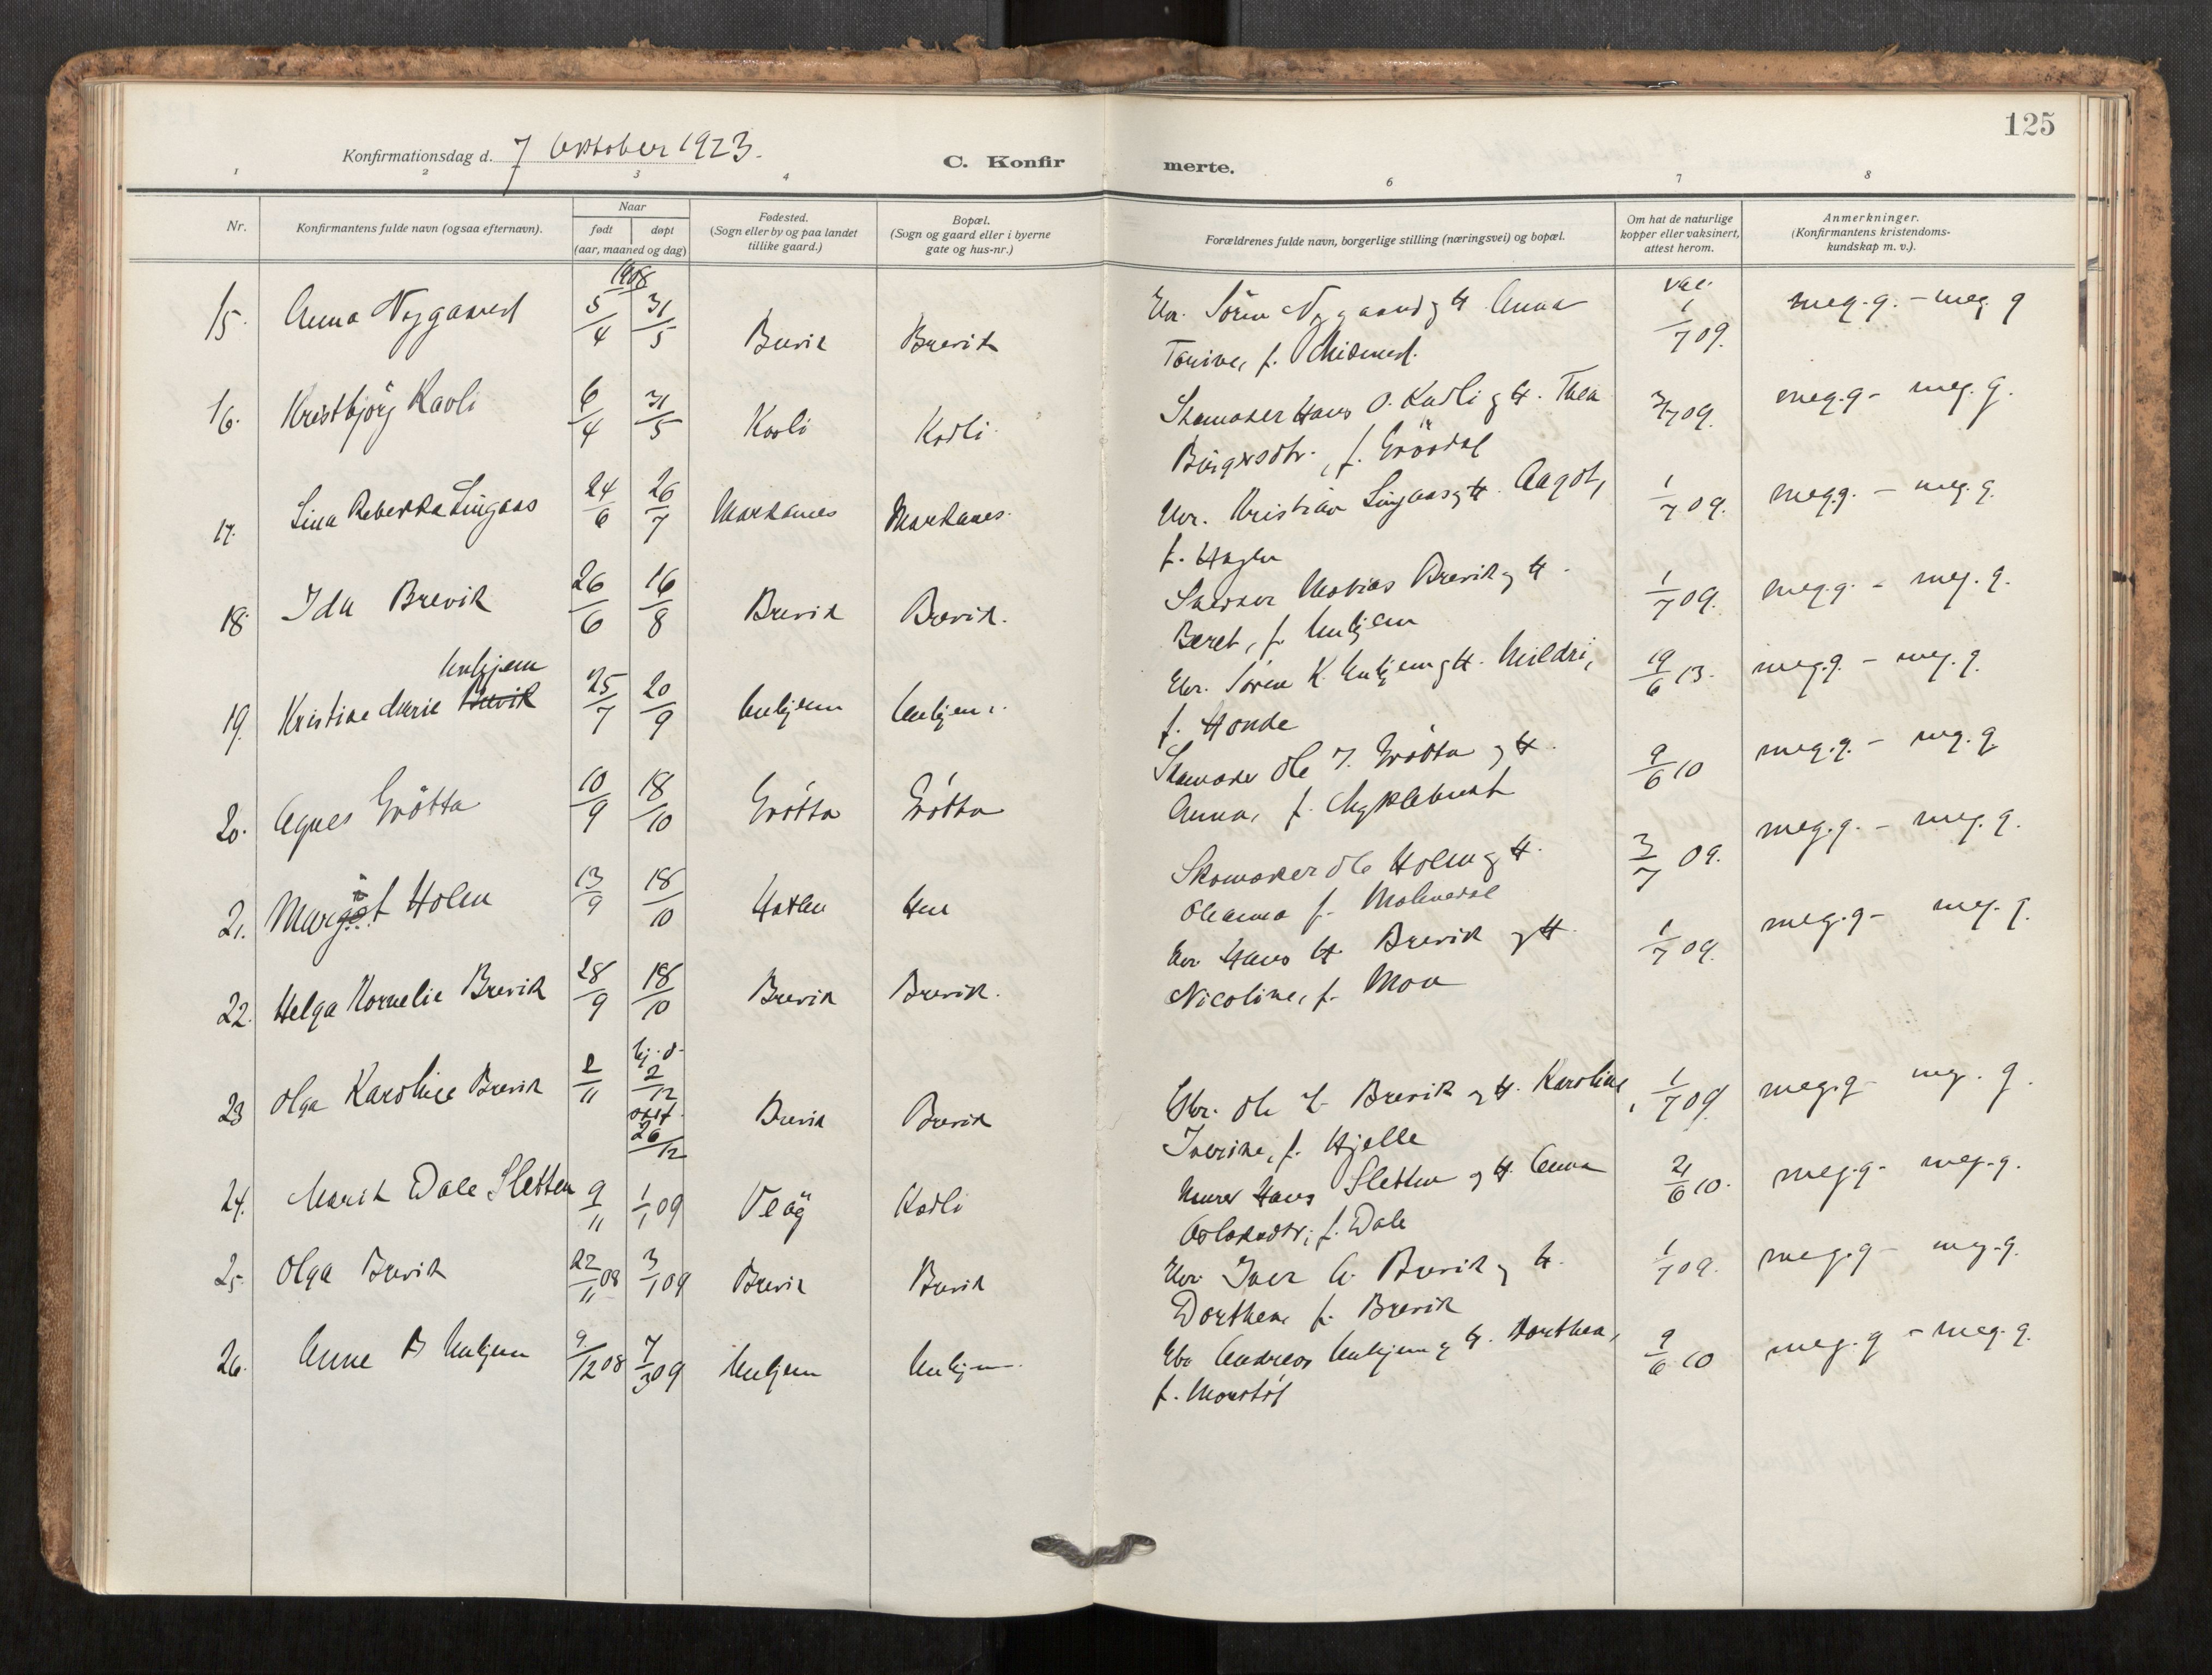 125
Konfirmationsdag d. 7 Oktober 1923.
C. Konfirmerte.
1 2 3 4 6 7 8
Nr.
Konfirmantens fulde navn (ogsaa efternavn).
Naar
født døpt
(aar, maaned og dag)
Fødested.
(Sogn eller by og paa landet
tillike gaard.)
Bopæl.
(Sogn og gaard eller i byerne
gate og hus-nr.)
Forældrenes fulde navn, borgerlige stilling (næringsvei) og bopæl.
Om hat de naturlige
kopper eller vaksinert,
attest herom.
Anmerkninger.
(Konfirmantens kristendoms-
kundskap m. v.).
1908
15. Anna Nygaard 5/4 31/5 Brevik Brevik Søren Nygaard og H. Anna vac. 1/7 09. meg. g. - meg. g
16. Kristbjörg Kavli 6/4 31/5 Hans O. Thea 3/7 09. meg. g - meg. g.
17. Lina Rebekka Lingaas 24/6 26/7 Markanes Markanes. Kristian Lingaas og H. Aagot, 1/7 09. meg g. - meg. g.
f. Hagen
18. Ida Brevik 26/6 16/8 Brevik Brevik. Brevik og H. 1/7 09. meg. g. - meg. g.
Beret, f. Unhjem
Unhjem
19. Kristine Marie Brevik 25/7 20/9 Unhjem Unhjem. Søren K. Unhjem og H. Mildri, 19/6 13. meg. g. - meg. g.
f. Honde
20. Agnes Grötta 10/9 18/10 Grötta Grötta Skomaker Ole J. Grötta og H. 9/6 10 meg. g. - meg. g
Anna, f. Myklebust
21. Holen 13/9 18/10 Skomaker Ole Holen og H. 3/7 09. meg. g. - meg. g.
Oleanna f. Malmedal
22. Helga Kornelie Brevik 28/9 18/10 Brevik Brevik. Hans H. Brevik og H. 1/7 09. meg. g - meg. g.
Nicoline, f. Moa
23 Olga Karoline Brevik 2/11 hj. d. 2/12 26/12 Brevik Brevik Ole L. Brevik og H. Karoline 1/7 09 meg. g - meg. g.
Iverine, f. Hjelle
24. Marit Dale Sletten 9/11 1/1 09 Veöy Murer Hans Sletten og H. Anna 21/6 10. meg. g - meg. g.
f. Dale
25. Olga Brevik 22/11 08 3/1 09 Brevik Brevik Iver A. Brevik og H. 1/7 09. meg. g - meg. g.
Dorthea, f. Brevik
26. Anne B Unhjem 9/12 08 7/3 09 Unhjem Unhjem. Andreas Unhjem og H. Dorthea, 9/6 10 meg. g - meg. g.
f. Monstøl